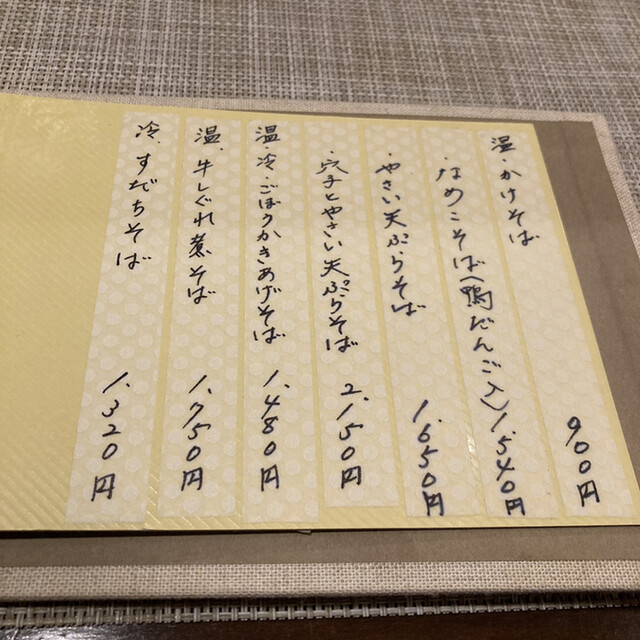 温・かけそば 900円
・なめこそば(鴨だんご入) 1.540円
・やさい天ぷらそば 1.650円
・穴子とやさい天ぷらそば 2.150円
温・冷・ごぼうかきあげそば 1.480円
温・牛しぐれ煮そば 1.750円
冷・すだちそば 1.320円